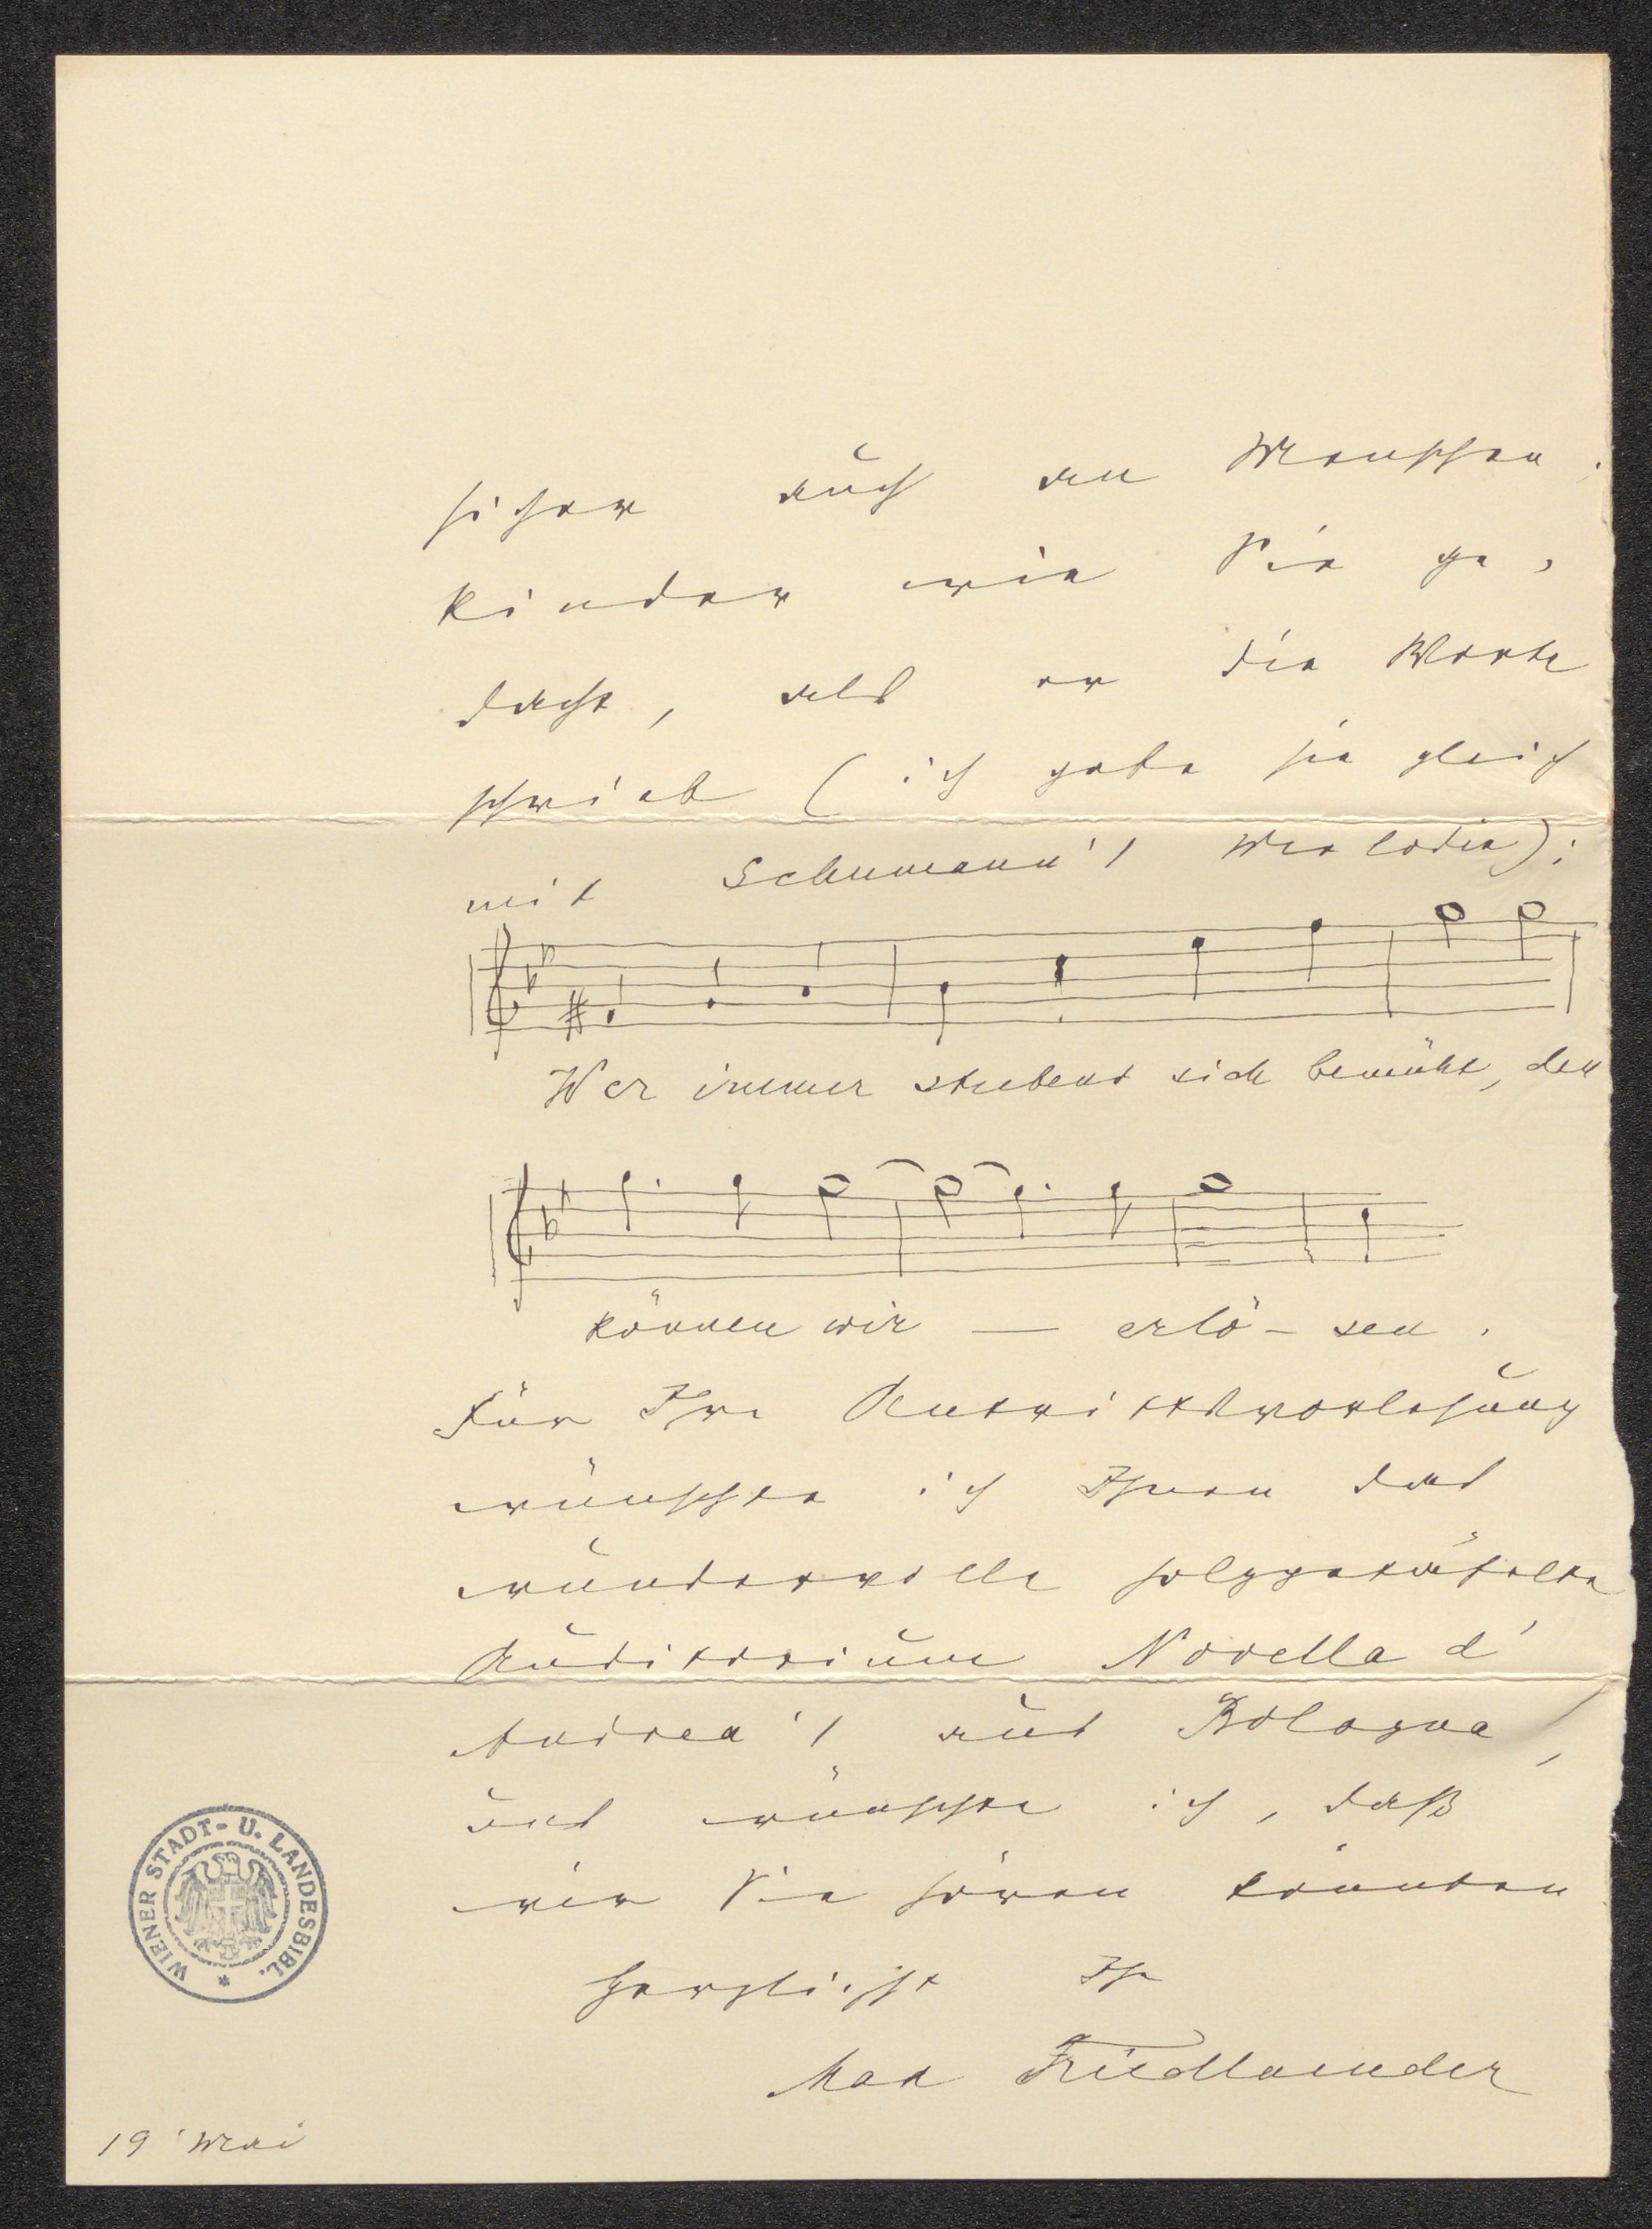 sicher auch an Menschen-
kinder wie Sie ge-
dacht, als er die Worte
schrieb (ich gebe sie gleich
mit Schumann's Melodie):
Wer immer strebend sich bemüht, den
können wir — erlö-sen.
Für Ihre Antrittsvorlesung
wünschte ich Ihnen das
wundervolle holzgetäfelte
Auditorium Novella d'
Andrea's aus Bologna,
und wünschte ich, daß
wir Sie hören könnten
Herzlichst Ihr
Max Friedlaender
WIENER STADT- U. LANDESBIBL.
19 Mai